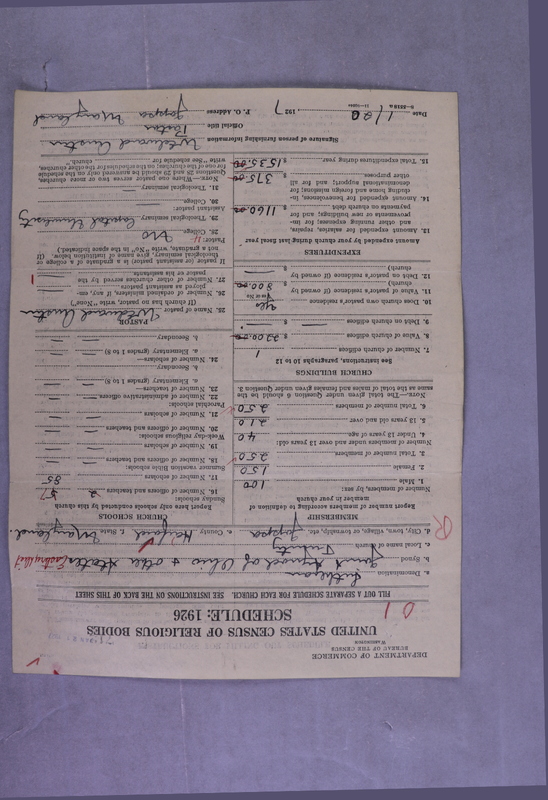 DEPARTMENT OF COMMERCE
BUREAU OF THE CENSUS
WASHINGTON
UNITED STATES CENSUS OF RELIGIOUS BODIES
SCHEDULE: 1926
FILL OUT A SEPARATE SCHEDULE FOR EACH CHURCH. SEE INSTRUCTIONS ON THE BACK OF THIS SHEET
a. Denomination Lutheran
b. Synod Joint Synod of Ohio & other States
c. Local name of church Trinity
d. City, town, village, or township, etc. Joppa e. County Harford f. State Maryland.
MEMBERSHIP
Report number of members according to definition of member in your church
Number of members, by sex:
1. Male 100
2. Female 150
3. Total members 250
Number of members under and over 13 years old:
4. Under 13 years of age 40
5. 13 years old and over 210
6. Total number of members 250
NOTE.—The total given under Question 6 should be the same as the total of males and females given under Question 3.
CHURCH BUILDINGS
See instructions, paragraphs 10 to 12
7. Number of church edifices 1
8. Value of church edifices $
9. Debt on church edifices $ —
10. Does church own pastor's residence Yes
Yes or No
11. Value of pastor's residence (if owned by church) $
12. Debt on pastor's residence (if owned by church) $ —
EXPENDITURES
Amount expended by your church during last fiscal year
13. Amount expended for salaries, repairs, and other running expenses; for improvements or new buildings; and for payments on church debt $1160.00
14. Amount expended for benevolences, including home and foreign missions; for denominational support; and for all other purposes $375.00
15. Total expenditures during year $1535.00
CHURCH SCHOOLS
Report here only schools conducted by this church
Sunday schools:
16. Number of officers and teachers
17. Number of scholars 85
Summer vacation Bible schools:
18. Number of officers and teachers —
19. Number of scholars —
Week-day religious schools:
20. Number of officers and teachers —
21. Number of scholars —
Parochial schools:
22. Number of administrative officers —
23. Number of teachers—
a. Elementary (grades 1 to 8) —
b. Secondary —
24. Number of scholars—
a. Elementary (grades 1 to 8) —
b. Secondary —
PASTOR
25. Name of pastor
(If church has no pastor, write "None")
26. Number of ordained ministers, if any, employed as assistant pastors —
27. Number of other churches served by the pastor or his assistants 1
If pastor (or assistant pastor) is a graduate of a college or theological seminary, give name of institution below. (If not a graduate, write "No" in the space indicated.)
Pastor:
28. College No
29. Theological seminary Capital University
Assistant pastor:
30. College
31. Theological seminary
NOTE.—Where one pastor serves two or more churches, Questions 28 and 29 should be answered only on the schedule of one of the churches; on the schedules for the other churches, write "See schedule for church."
Signature of person furnishing information
Official title Pastor
Date 1/20, 1927 P. O. Address Joppa Maryland